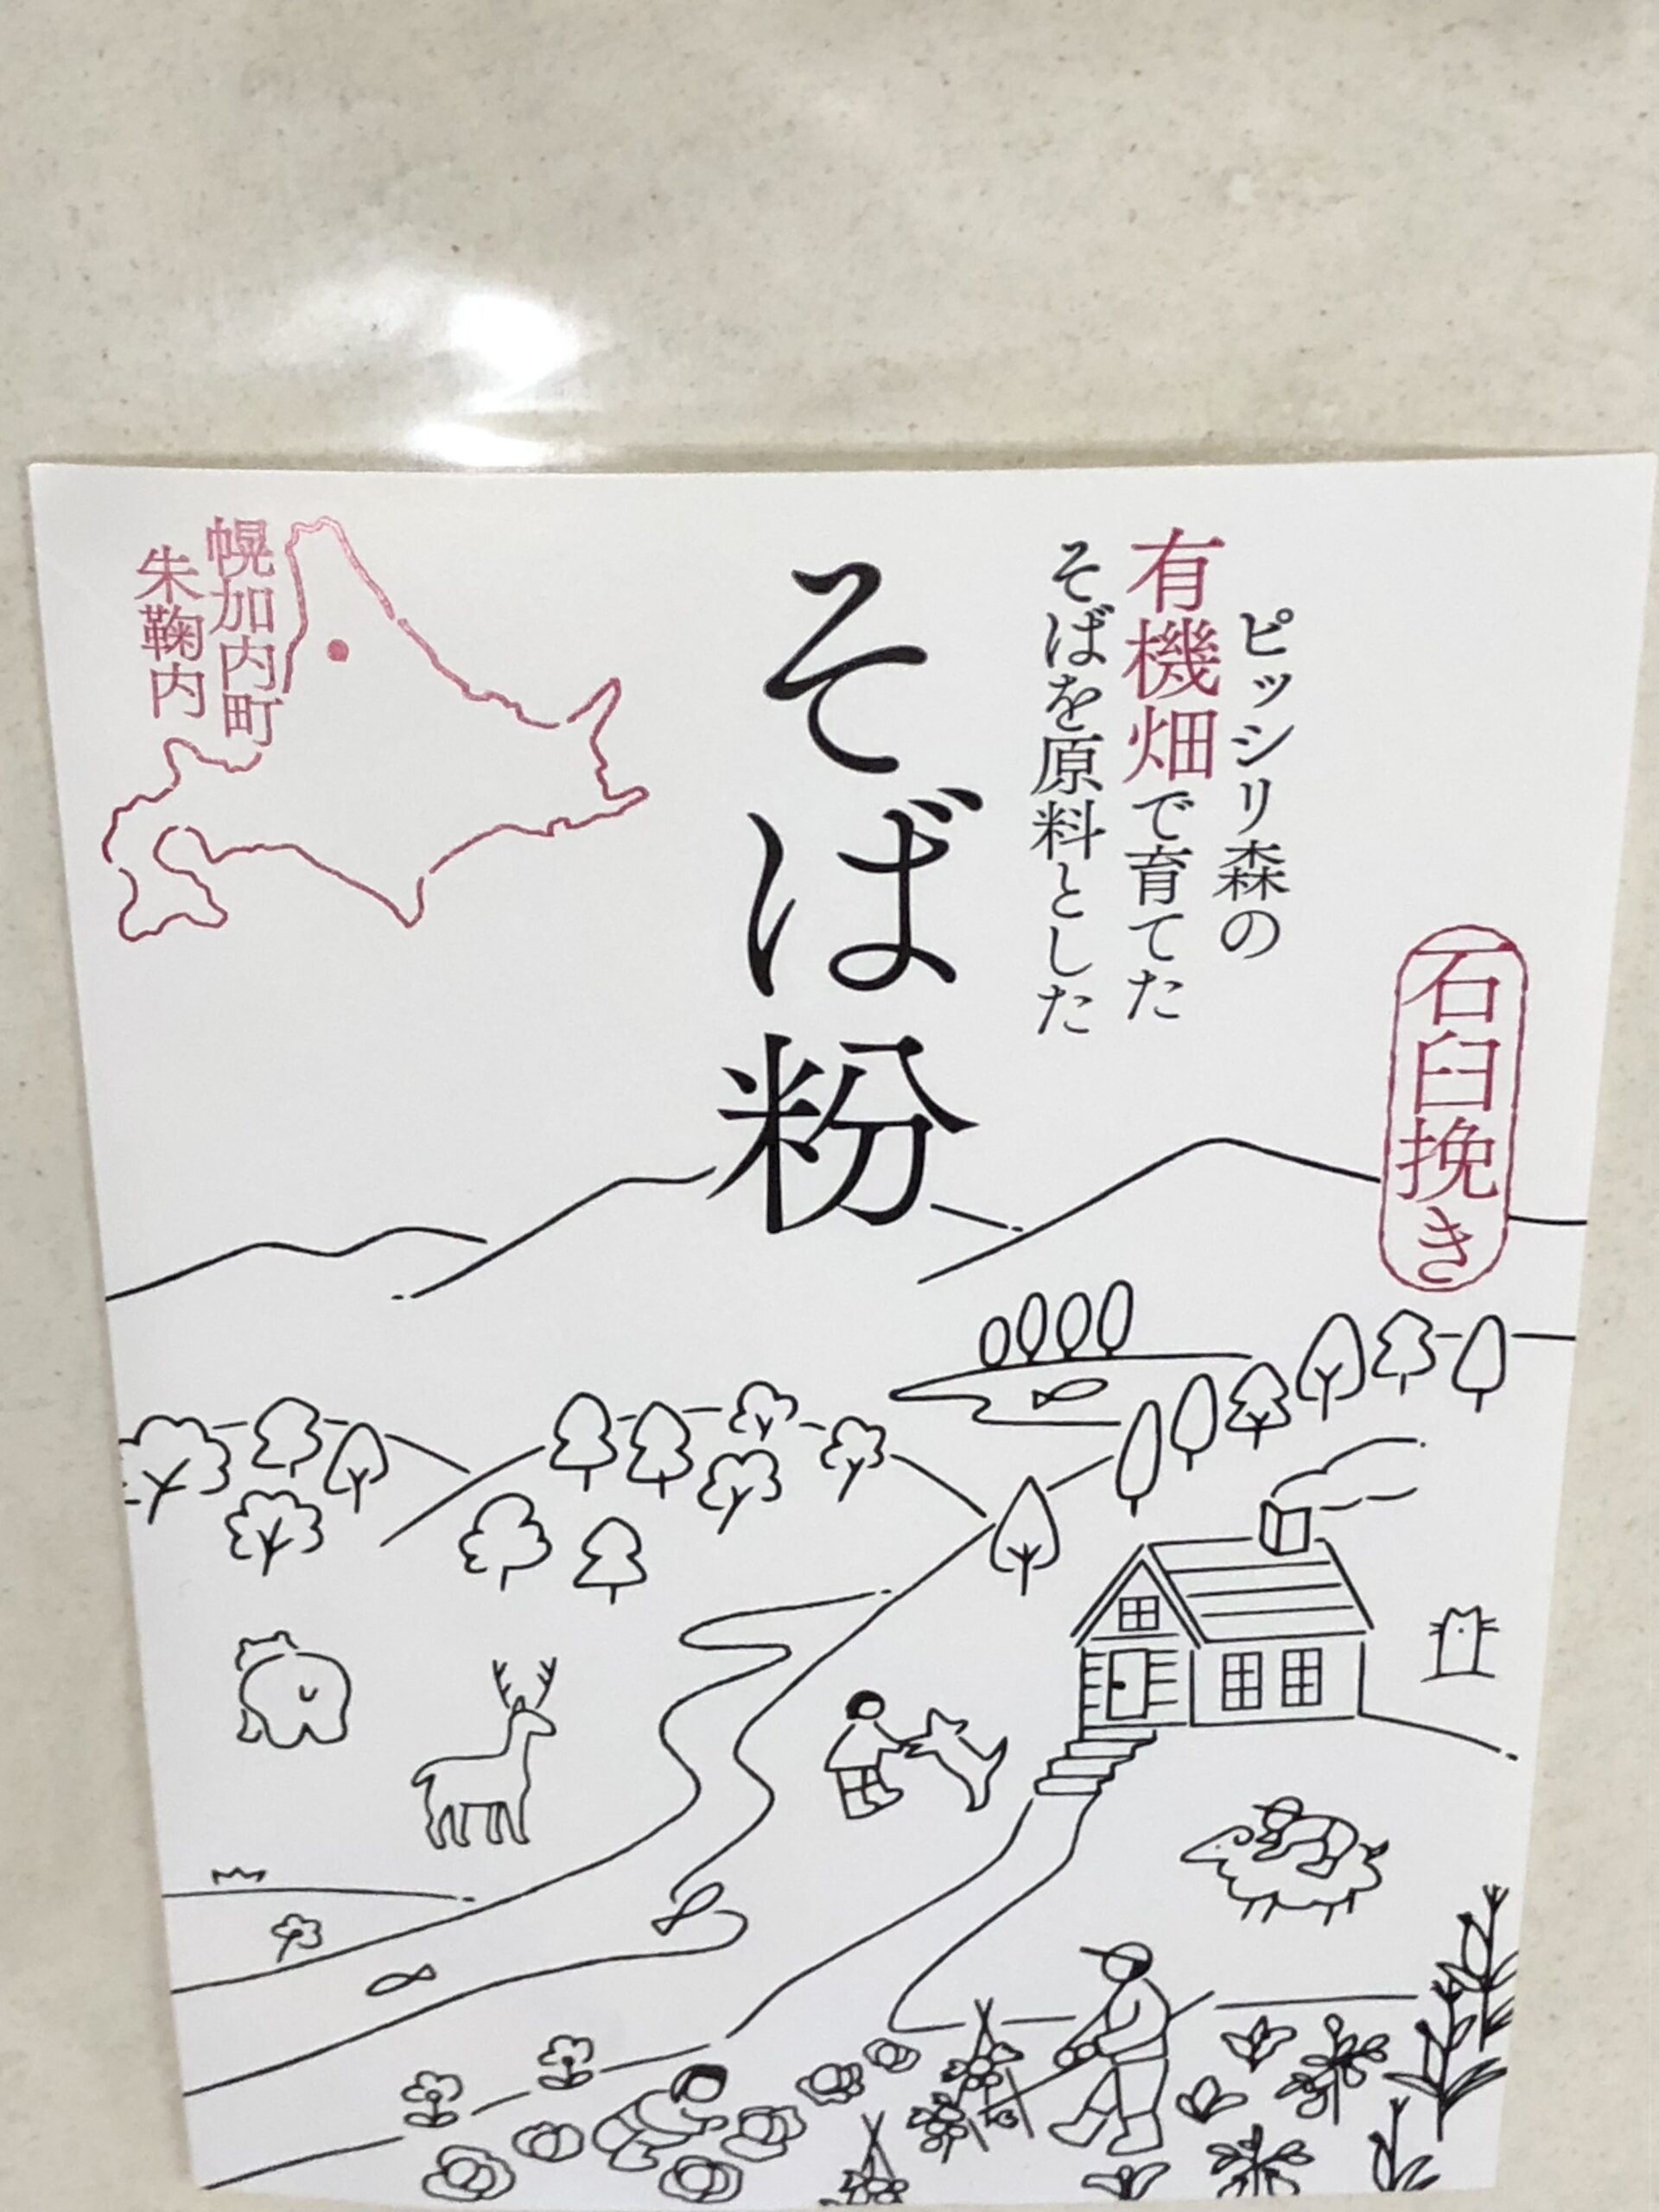 石臼挽き
ピッシリ森の
有機畑で育てた
そばを原料とした
そば粉
幌加内町
朱鞠内